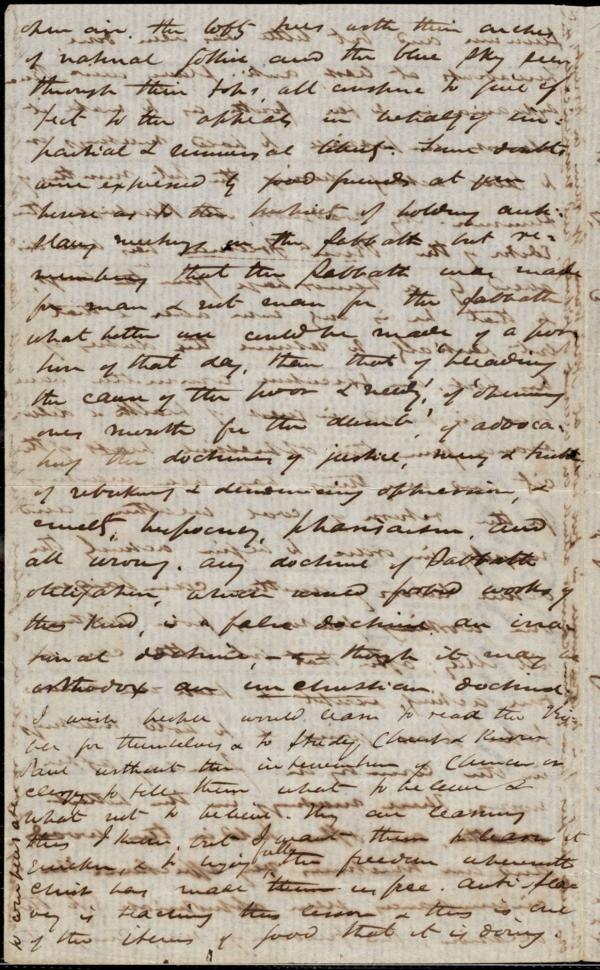 open air. the lofty trees with their arches
of natural Gothic and the blue sky seen
through their tops, all conspire to give ef-
fect to the appeals in behalf of im-
partial & universal liberty. Some doubts
were expressed by good friends at
as to the of holding anti-
slavery meetings on the Sabbath but re-
membering that the Sabbath was made
for man & not man for the Sabbath
what better use could be made of a por-
tion of that day, than that of pleading
the cause of the poor & needy, of opening
ones mouth for the dumb, of advoca-
ting the doctrines of justice, mercy & truth
of rebuking & denouncing oppression, &
cruelty, hypocrisy, phariseeism, and
all wrong. any doctrine of Sabbath
obligation, which would forbid works of
this kind, is a false doctrine. an irra-
tional doctrine, - & though it may be
orthodox an unchristian doctrine.
I wish people would learn to read the Bi-
ble for themselves & to study Christ & know
Paul without the intervention of Church or
clergy to tell them what to believe &
what not to believe. They are learning
this I know, but I want them to learn it
quicker, & to enjoy fully the freedom wherewith
Christ has made them free. Anti-Sla-
very is teaching this lesson & this is one
of the items of good that it is doing.